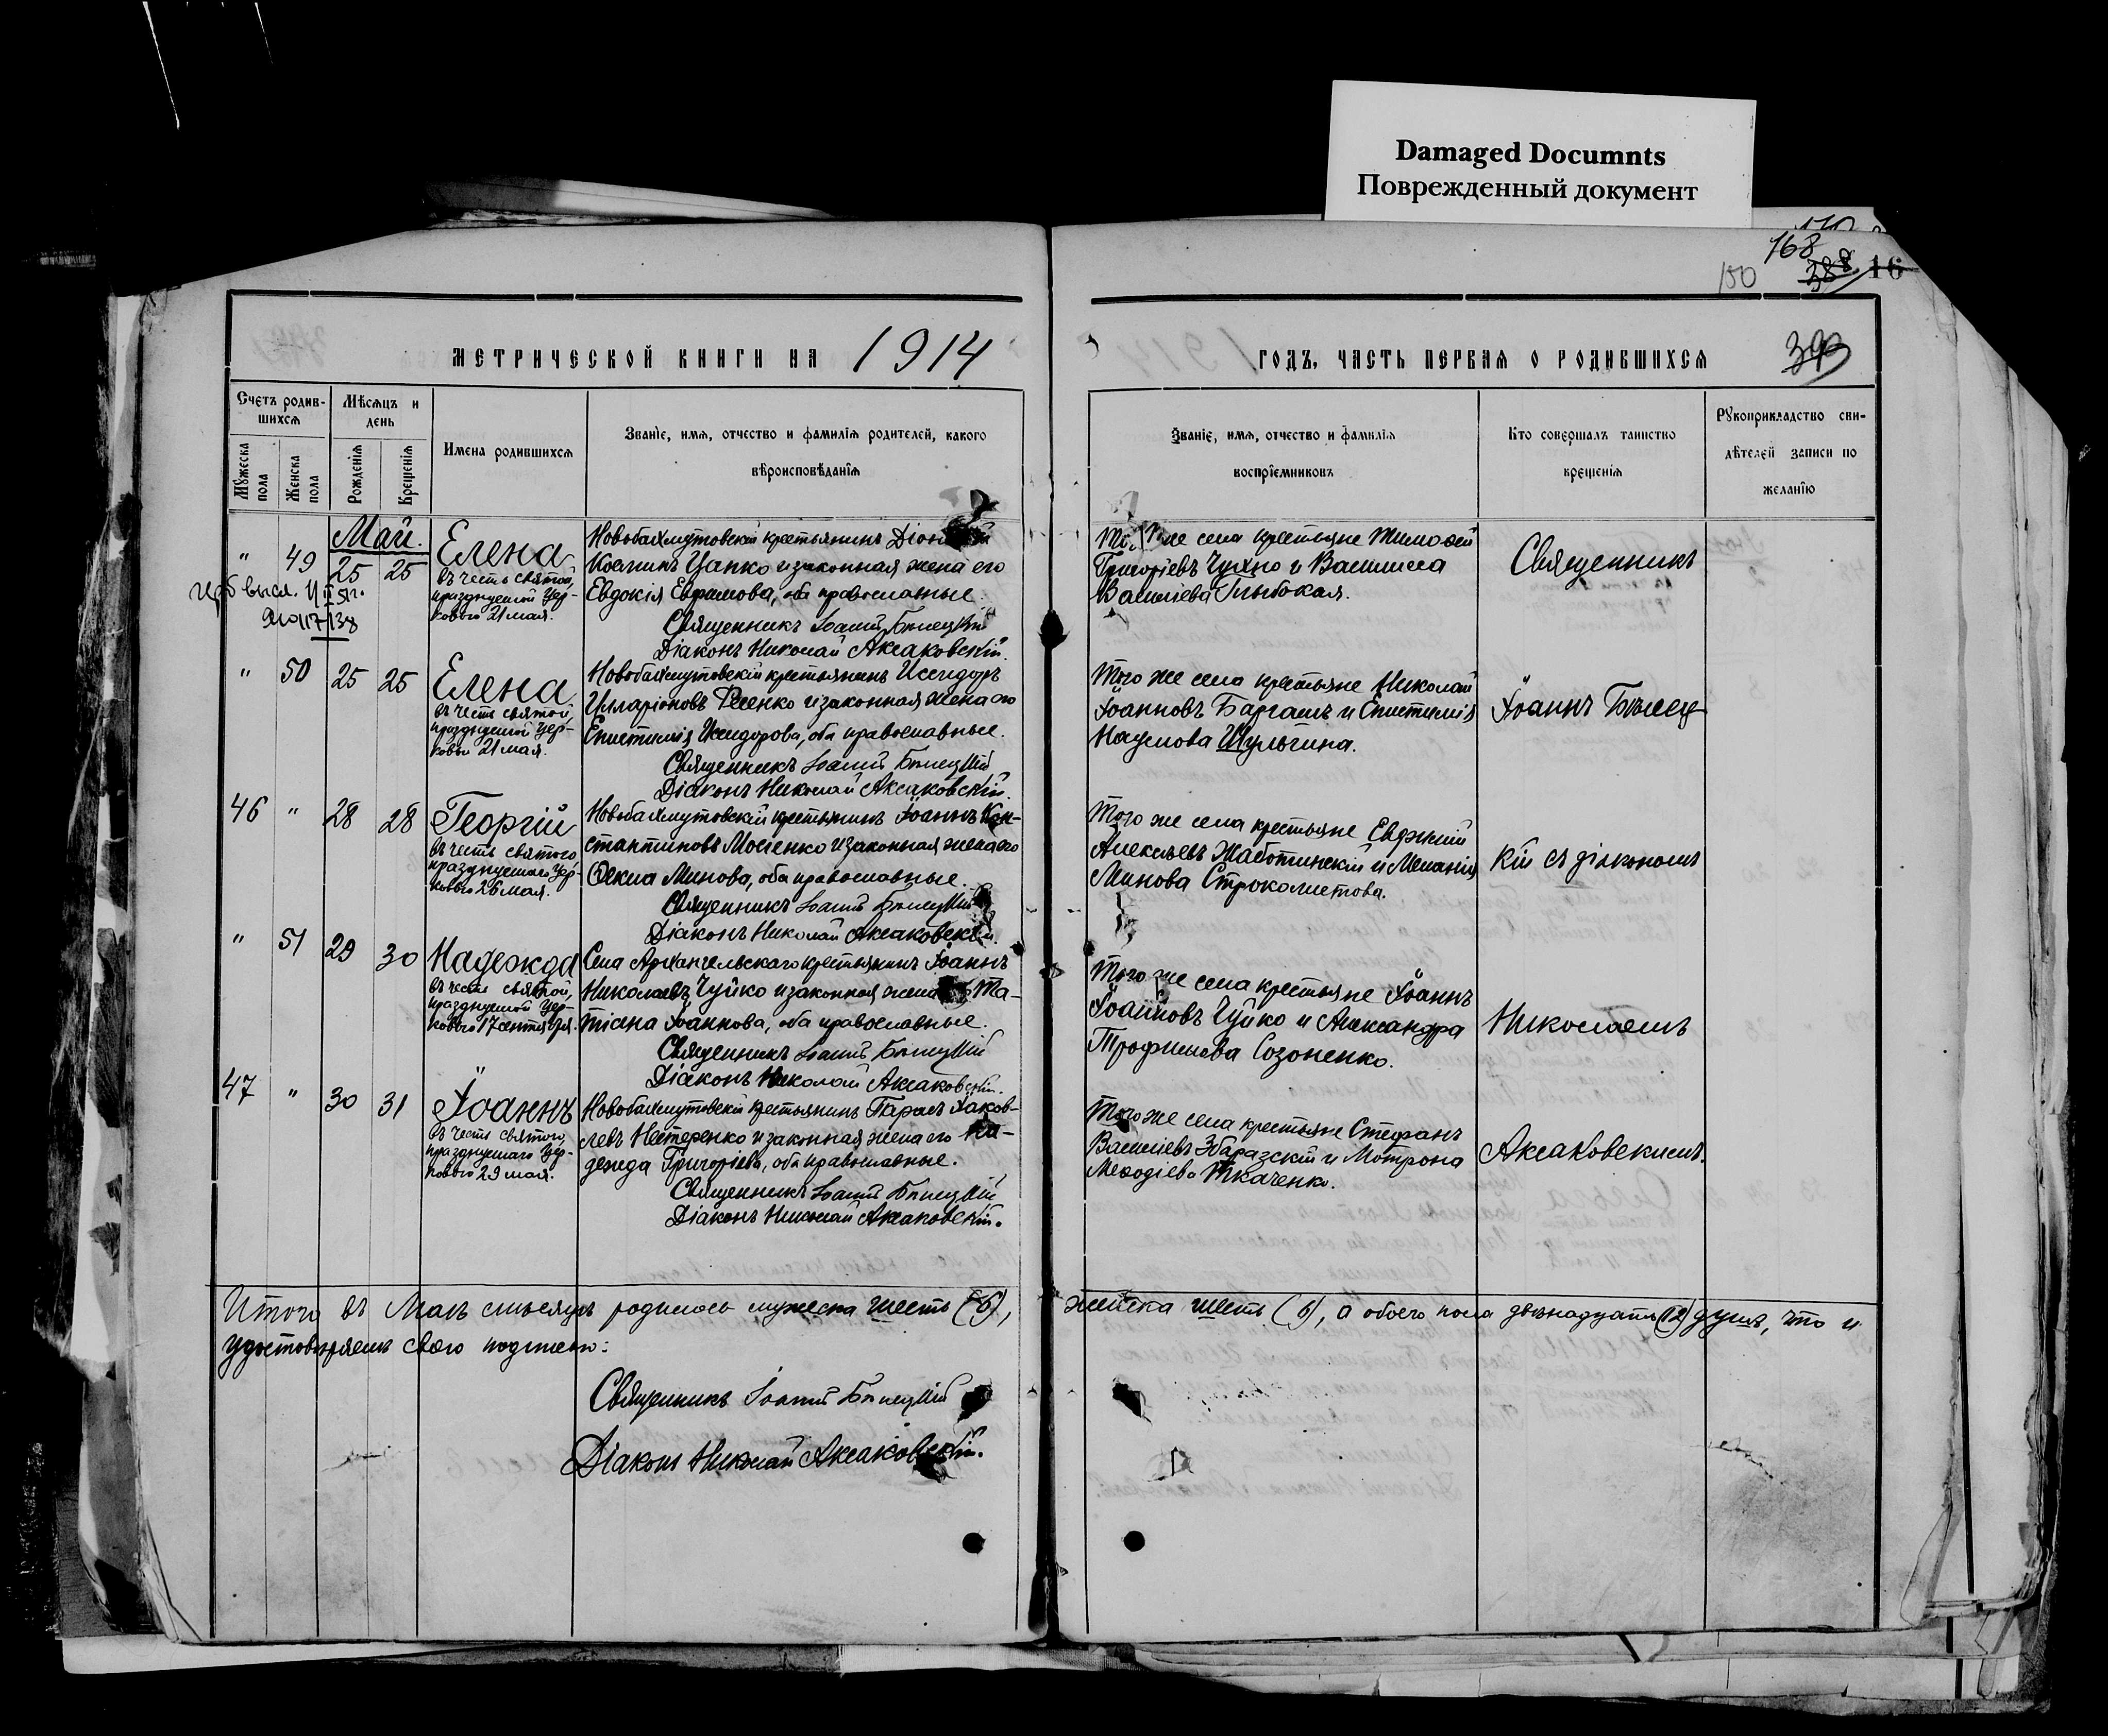 Damaged Documnts
Поврежденный документ
168
150
388
16
МЕТРИЧЕСКОЙ КНИГИ НА 1914
ГОДЪ, ЧАСТЬ ПЕРВАЯ О РОДИВШИХСЯ
399
Счетъ родив-
шихся
Мѣсяцъ и
день
Мужеска
пола
Женска
пола
Рожденія
Крещенія
Имена родившихся
Званіе, имя, отчество и фамилія родителей, какого
вѣроисповѣданія
Званіе, имя, отчество и фамилія
воспріемниковъ
Кто совершалъ таинство
крещенія
Рукоприкладство сви-
дѣтелей записи по
желанію
Май.
" 49 25 25
Елена
въ честь святой,
празднуемой Цер-
ковью 21 мая.
Новобахмутовскій крестьянинъ
Косминъ Цапко и законная жена его
Евдокія Ефремова, оба православные.
Священникъ Іоаннъ Бѣлецкій
Діаконъ Николай Аксаковскій.
же села крестьяне Тимоѳей
Григоріевъ Чухно и Василиса
Василіева Глыбокая.
Священникъ
" 50 25 25
Елена
въ честь святой,
празднуемой Цер-
ковью 21 мая.
Новобахмутовскій крестьянинъ Исидоръ
Илларіоновъ Фесенко и законная жена его
Епистимія Исидорова, оба православные.
Священникъ Іоаннъ Бѣлецкій
Діаконъ Николай Аксаковскій.
Того же села крестьяне Николай
Іоанновъ Баргашъ и Епистимія
Наумова Шульгина.
Іоаннъ Бѣлец-
46 " 28 28
Георгій
въ честь святого,
празднуемаго Цер-
ковью 26 мая.
Новобахмутовскій крестьянинъ Іоаннъ Кон-
стантиновъ Мосіенко и законная жена его
Ѳекла Минова, оба православные.
Священникъ Іоаннъ Бѣлецкій
Діаконъ Николай Аксаковскій.
Того же села крестьяне Евѳимій
Алексѣевъ Жаботинскій и Меланія
Минова Строкометова.
кій съ діакономъ
" 51 29 30
Надежда
въ честь святой,
празднуемой Цер-
ковью 17 сентября.
Села Архангельскаго крестьянинъ Іоаннъ
Николаевъ Чуйко и законная жена Та-
тіана Іоаннова, оба православные.
Священникъ Іоаннъ Бѣлецкій
Діаконъ Николай Аксаковскій.
Того же села крестьяне Іоаннъ
Іоанновъ Чуйко и Александра
Трофимова Созоненко.
Николаемъ
47 " 30 31
Іоаннъ
въ честь святого,
празднуемаго Цер-
ковью 29 мая.
Новобахмутовскій крестьянинъ Тарасъ Іаков-
левъ Нестеренко и законная жена его На-
дежда Григоріева, оба православные.
Священникъ Іоаннъ Бѣлецкій
Діаконъ Николай Аксаковскій.
Того же села крестьяне Стефанъ
Василіевъ Збаразскій и Мотрона
Меѳодіева Ткаченко.
Аксаковскимъ.
Итого въ Маѣ мѣсяцѣ родилось мужеска шесть (6), женска шесть (6), а обоего пола двѣнадцать (12) душъ, что и
удостовѣряемъ своею подписью:
Священникъ Іоаннъ Бѣлецкій
Діаконъ Николай Аксаковскій.